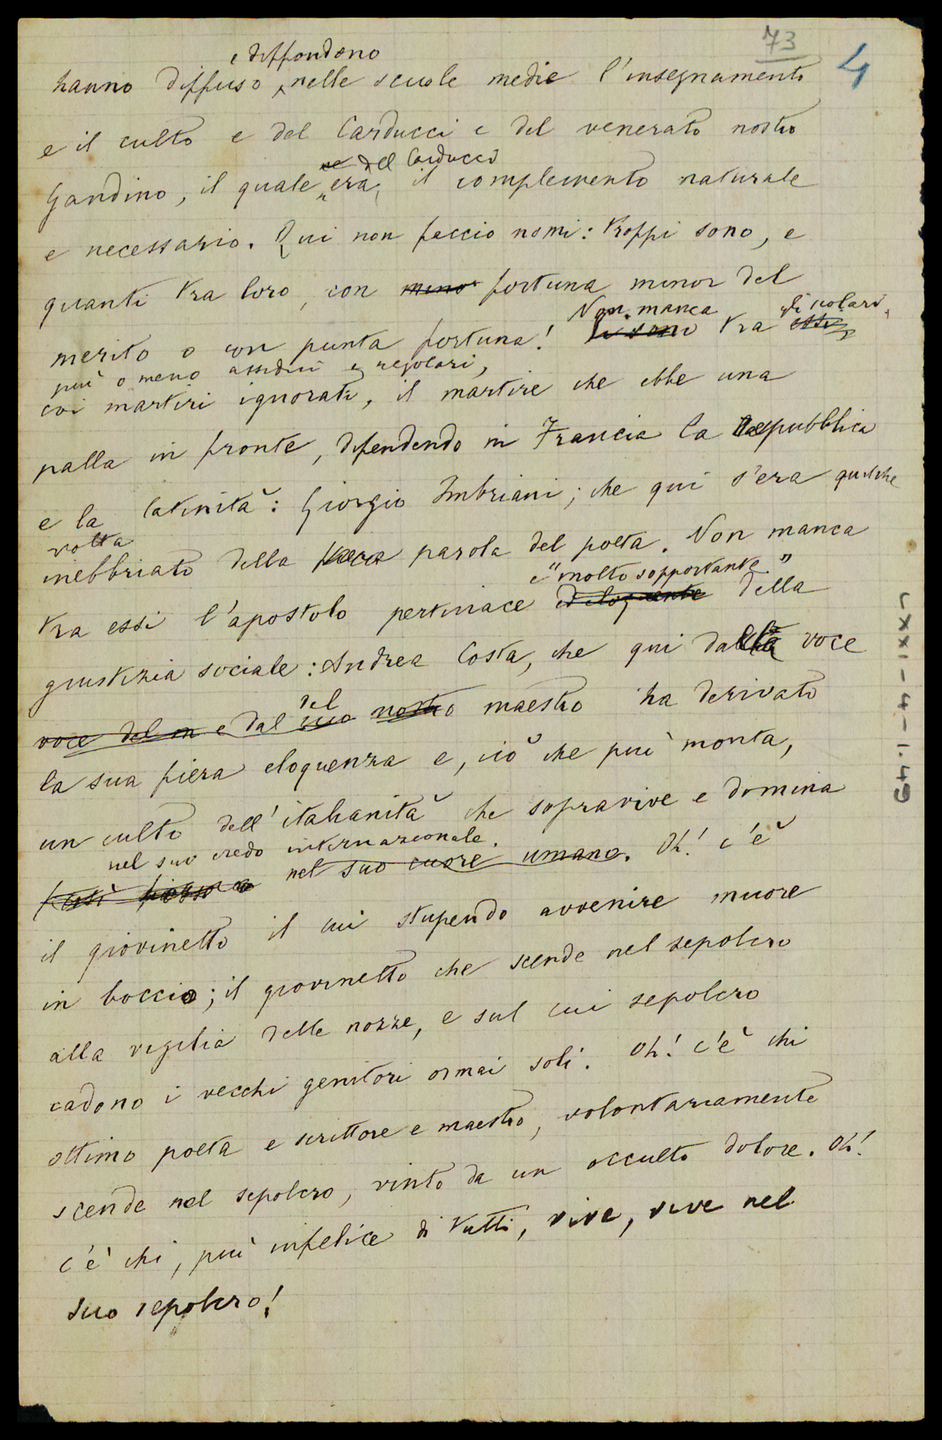 73
4
e diffondono
hanno diffuso, nelle scuole medie l'insegnamento
e il culto e del Carducci e del venerato nostro
del Carducci
Gandino, il quale era, il complemento naturale
e necessario. Qui non faccio nomi: troppi sono, e
quanti tra loro, con minor fortuna minor del
Non manca discolari,
merito o con punta fortuna! Vi sono tra essi
più o meno assidui e regolari,
coi martiri ignorati, il martire che ebbe una
palla in fronte, difendendo in Francia la Repubblica
e la latinità: Giorgio Imbriani; che qui s'era qualche
volta
inebbriato della parola del poeta. Non manca
e "molto sopportante"
tra essi l'apostolo pertinace ed eloquente della
giustizia sociale: Andrea Costa, che qui dalla voce
del
voce del m e dal suo nostro maestro ha derivato
la sua fiera eloquenza e, ciò che più monta,
un culto dell'italianità che sopravive e domina
nel suo credo internazionale.
nel suo cuore umano. Oh! c'è
il giovinetto il cui stupendo avvenire muore
in boccio; il giovinetto che scende nel sepolcro
alla vigilia delle nozze, e sul cui sepolcro
cadono i vecchi genitori ormai soli. Oh! c'è chi
ottimo poeta e scrittore e maestro, volontariamente
scende nel sepolcro, vinto da un occulto dolore. Oh!
c'è chi, più infelice di tutti, vive, vive nel
suo sepolcro!
LXXI-4-1.49